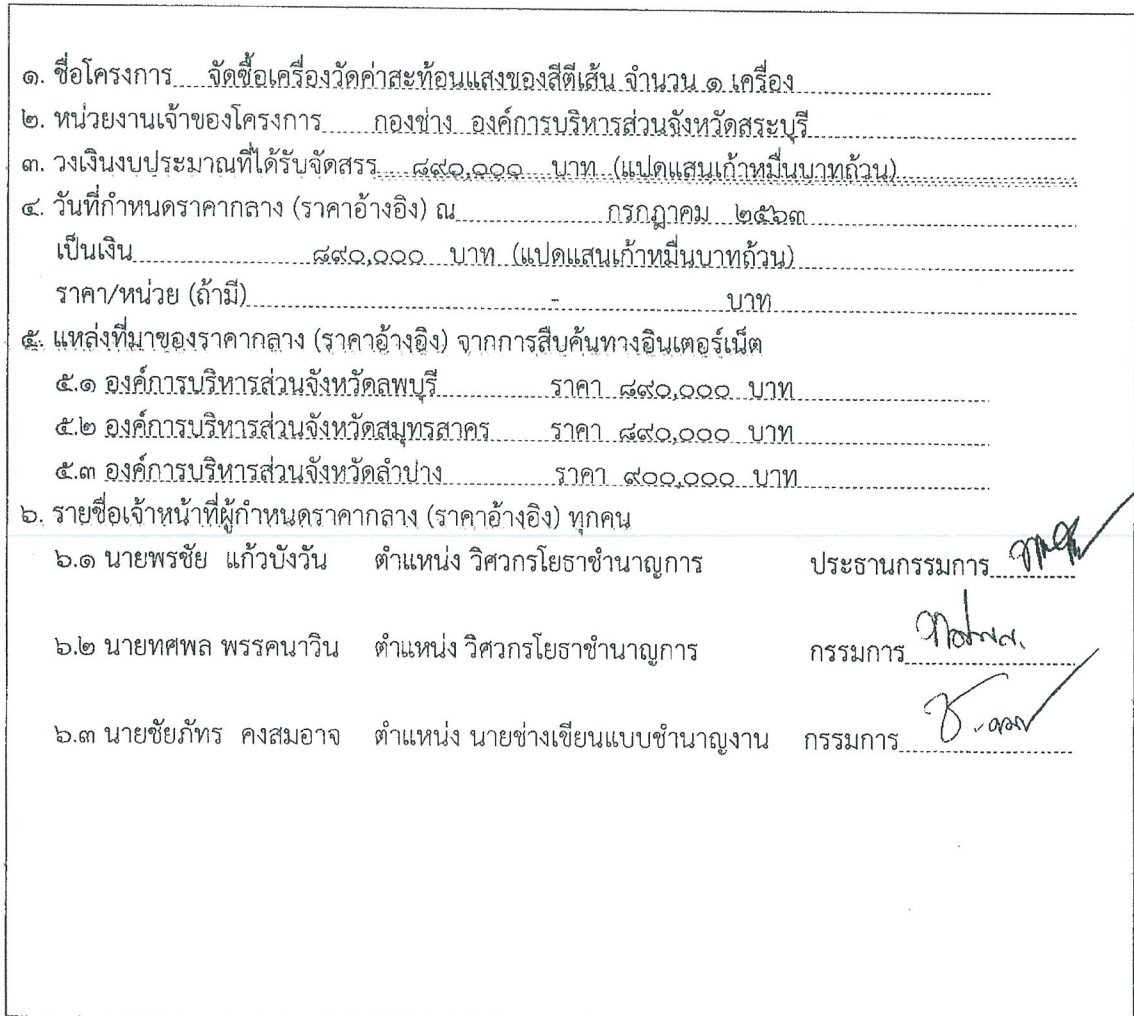 ๑. ชื่อโครงการ จัดซื้อเครื่องวัดค่าสะท้อนแสงของสีตีเส้น จำนวน ๑ เครื่อง
๒. หน่วยงานเจ้าของโครงการ กองช่าง องค์การบริหารส่วนจังหวัดสระบุรี
๓. วงเงินงบประมาณที่ได้รับจัดสรร ๘๙๐,๐๐๐ บาท (แปดแสนเก้าหมื่นบาทถ้วน)
๔. วันที่กำหนดราคากลาง (ราคาอ้างอิง) ณ กรกฎาคม ๒๕๖๓
เป็นเงิน ๘๙๐,๐๐๐ บาท (แปดแสนเก้าหมื่นบาทถ้วน)
ราคา/หน่วย (ถ้ามี) - บาท
๕. แหล่งที่มาของราคากลาง (ราคาอ้างอิง) จากการสืบค้นทางอินเตอร์เน็ต
๕.๑ องค์การบริหารส่วนจังหวัดลพบุรี ราคา ๘๙๐,๐๐๐ บาท
๕.๒ องค์การบริหารส่วนจังหวัดสมุทรสาคร ราคา ๘๙๐,๐๐๐ บาท
๕.๓ องค์การบริหารส่วนจังหวัดลำปาง ราคา ๙๐๐,๐๐๐ บาท
๖. รายชื่อเจ้าหน้าที่ผู้กำหนดราคากลาง (ราคาอ้างอิง) ทุกคน
๖.๑ นายพรชัย แก้วบังวัน ตำแหน่ง วิศวกรโยธาชำนาญการ ประธานกรรมการ
๖.๒ นายทศพล พรรคนาวิน ตำแหน่ง วิศวกรโยธาชำนาญการ กรรมการ
๖.๓ นายชัยภัทร คงสมอาจ ตำแหน่ง นายช่างเขียนแบบชำนาญงาน กรรมการ